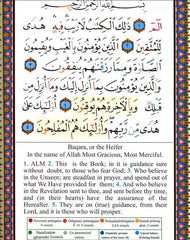 بِسْمِ ٱللَّهِ ٱلرَّحْمَٰنِ ٱلرَّحِيمِ
الٓمٓ ١ ذَٰلِكَ ٱلْكِتَٰبُ لَا رَيْبَ فِيهِ هُدًى
لِّلْمُتَّقِينَ ٢ ٱلَّذِينَ يُؤْمِنُونَ بِٱلْغَيْبِ وَيُقِيمُونَ
ٱلصَّلَوٰةَ وَمِمَّا رَزَقْنَٰهُمْ يُنفِقُونَ ٣ وَٱلَّذِينَ
يُؤْمِنُونَ بِمَآ أُنزِلَ إِلَيْكَ وَمَآ أُنزِلَ مِن قَبْلِكَ
وَبِٱلْءَاخِرَةِ هُمْ يُوقِنُونَ ٤ أُو۟لَٰٓئِكَ عَلَىٰ
هُدًى مِّن رَّبِّهِمْ وَأُو۟لَٰٓئِكَ هُمُ ٱلْمُفْلِحُونَ ٥
Baqara, or the Heifer
In the name of Allah Most Gracious, Most Merciful.
1. ALM 2. This is the Book; in it is guidance sure
without doubt, to those who fear God; 3. Who believe
in the Unseen; are steadfast in prayer, and spend out of
what We Have provided for them; 4. And who believe in
the Revelation sent to thee, and sent before thy time,
and (in their hearts) have the assurance of the
Hereafter. 5. They are on (true) guidance, from their
Lord, and it is these who will prosper.